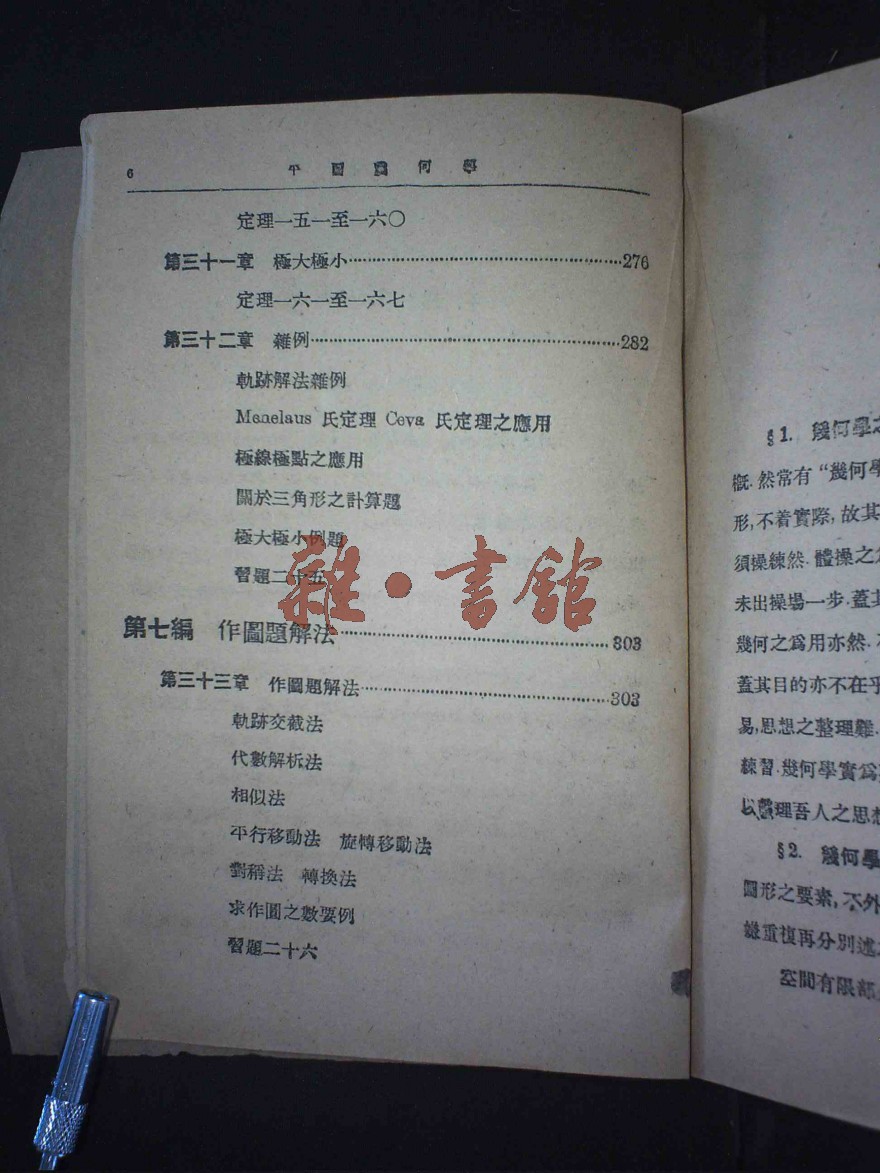 6 平面幾何學
定理一五一至一六〇
第三十一章 極大極小 276
定理一六一至一六七
第三十二章 雜例 282
軌跡解法雜例
Menelaus 氏定理 Ceva 氏定理之應用
極線極點之應用
關於三角形之計算題
極大極小例題
習題二十五
雜·書館
第七編 作圖題解法 303
第三十三章 作圖題解法 303
軌跡交截法
代數解析法
相似法
平行移動法 旋轉移動法
對稱法 轉換法
求作圖之數要例
習題二十六
§1. 幾何學之
概. 然常有“幾何學
形, 不着實際, 故其
須操練然. 體操之
未出操場一步. 蓋其
幾何之爲用亦然.
蓋其目的亦不在乎
易, 思想之整理難.
練習. 幾何學實爲
以整理吾人之思想
§2. 幾何學
圖形之要素, 不外
嫌重複再分別述
空間有限部